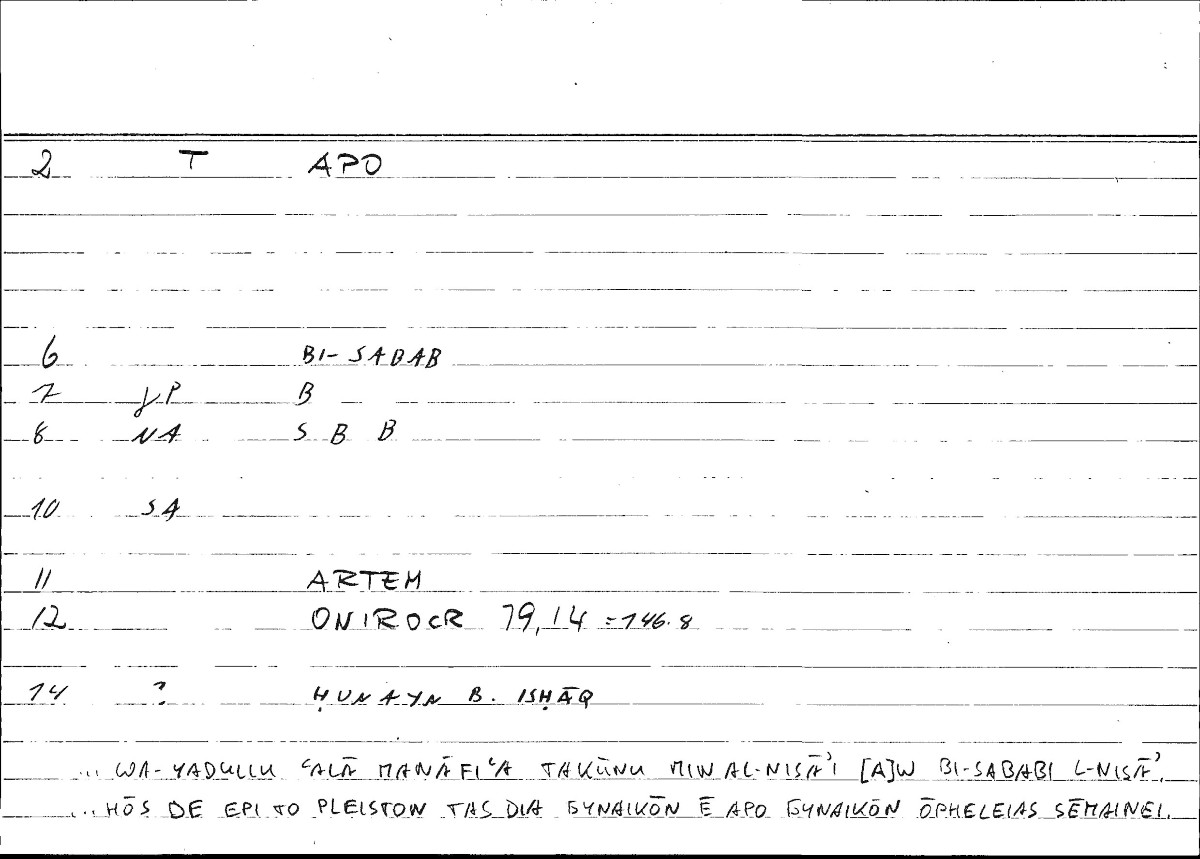 2 T APO
6 BI-SABAB
7 γP B
8 NA S B B
10 SA
11 ARTEM
12 ONIROCR 79,14 =146.8
14 ? ḤUNAYN B. ISḤĀQ
... WA-YADULLU ʿALĀ MANĀFIʿA TAKŪNU MIN AL-NISĀʾI [A]W BI-SABABI L-NISĀʾ.
... HŌS DE EPI TO PLEISTON TAS DIA GYNAIKŌN Ē APO GYNAIKŌN ŌPHELEIAS SĒMAINEI.